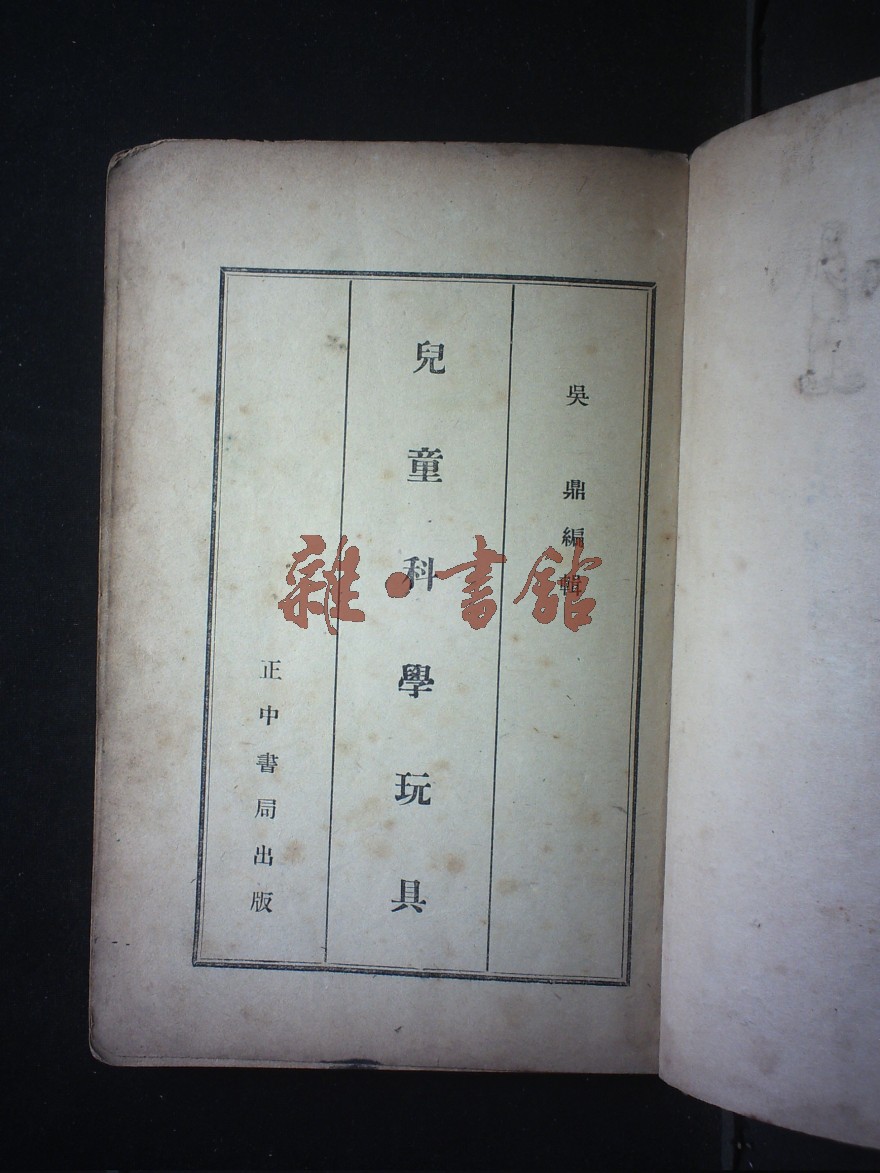 吳鼎編輯
兒童科學玩具
正中書局出版
雜·書館